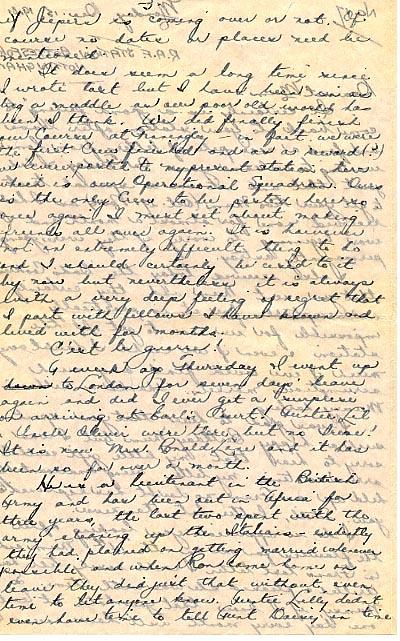 3
if Jespen is coming over or not. Of
course no dates or places need be
mentioned.
It does seem a long time since
I wrote last but I have been in as
big a muddle as our poor old world has
been I think. We did finally finish
our Course at Training in fact we were
the first Crew finished and as a reward (?)
we were posted to my present station here
which is our Operational Squadron. Ours
is the only Crew to be posted here so
over again I must set about making
friends all over again. It is however
not an extremely difficult thing to do
and I should certainly be used to it
by now but nevertheless it is always
with a very deep feeling of regret that
I part with fellows I have known and
lived with for months.
C'est la guerre!
A week ago Thursday I went up
to London for seven days leave
again and did I ever get a surprise
on arriving at Earl's Court! Auntie Lil
Uncle were there but no
It is now Mrs. and it has
been so for over a month.
He is a lieutenant in the British
Army and has been out in Africa for
three years, the last two spent with the
army cleaning up the Italians - evidently
they had planned on getting married whenever
possible and when Ron came home on
leave they did just that without even
time to let anyone know. Auntie Lilly didn't
even have time to tell Aunt Daisy in time